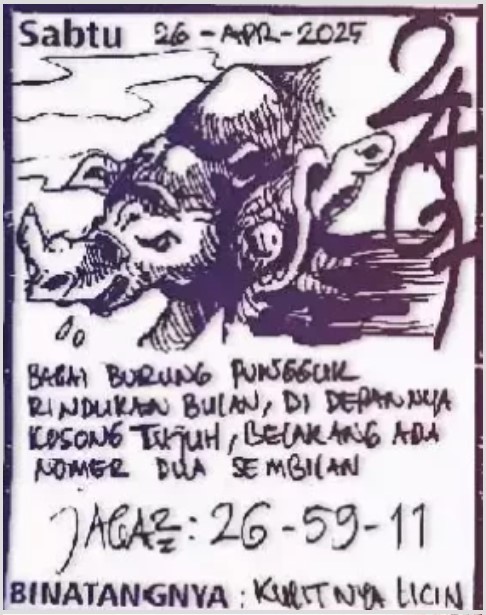 Sabtu 26 - APR - 2025
BAGAI BURUNG PUNGGUK
RINDUKAN BULAN, DI DEPANNYA
KOSONG TUJUH, BELAKANG ADA
NOMER DUA SEMBILAN
JAGA2: 26 - 59 - 11
BINATANGNYA : KULITNYA LICIN